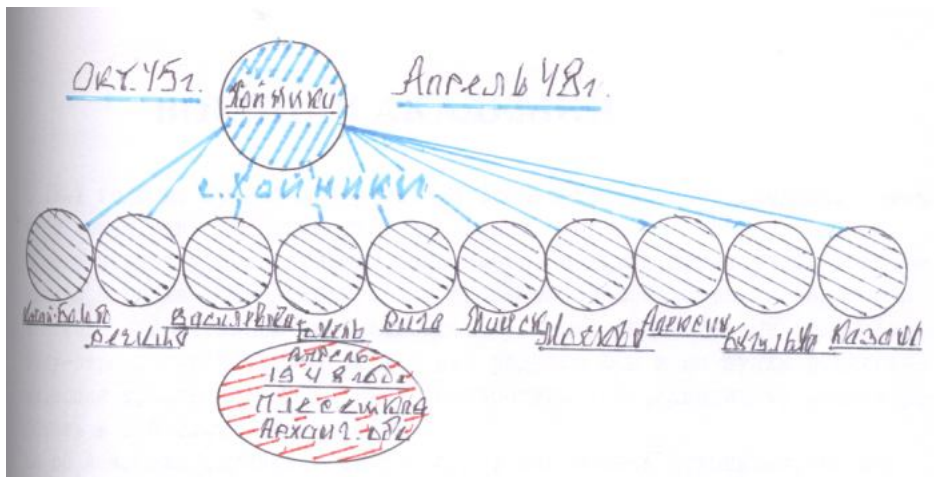 Окт. 45г.
Апрель 48г.
Хойники
г. Хойники
Речица
Василевка
Гомель
Рига
Минск
Москва
Алексин
Бугульма
Казань
Апрель
1948 года
Плесецкая
Арханг. обл